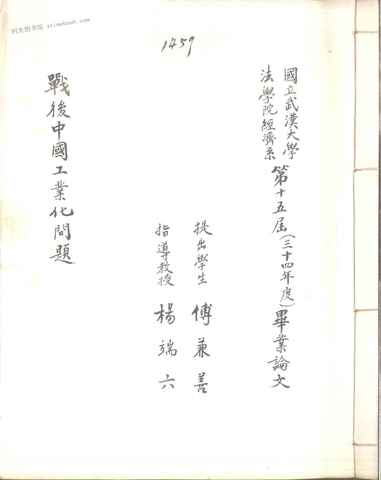 1459
國立武漢大學
法學院經濟系
第十五屆(三十四年度)畢業論文
提出學生 傅兼善
指導教授 楊端六
戰後中國工業化問題